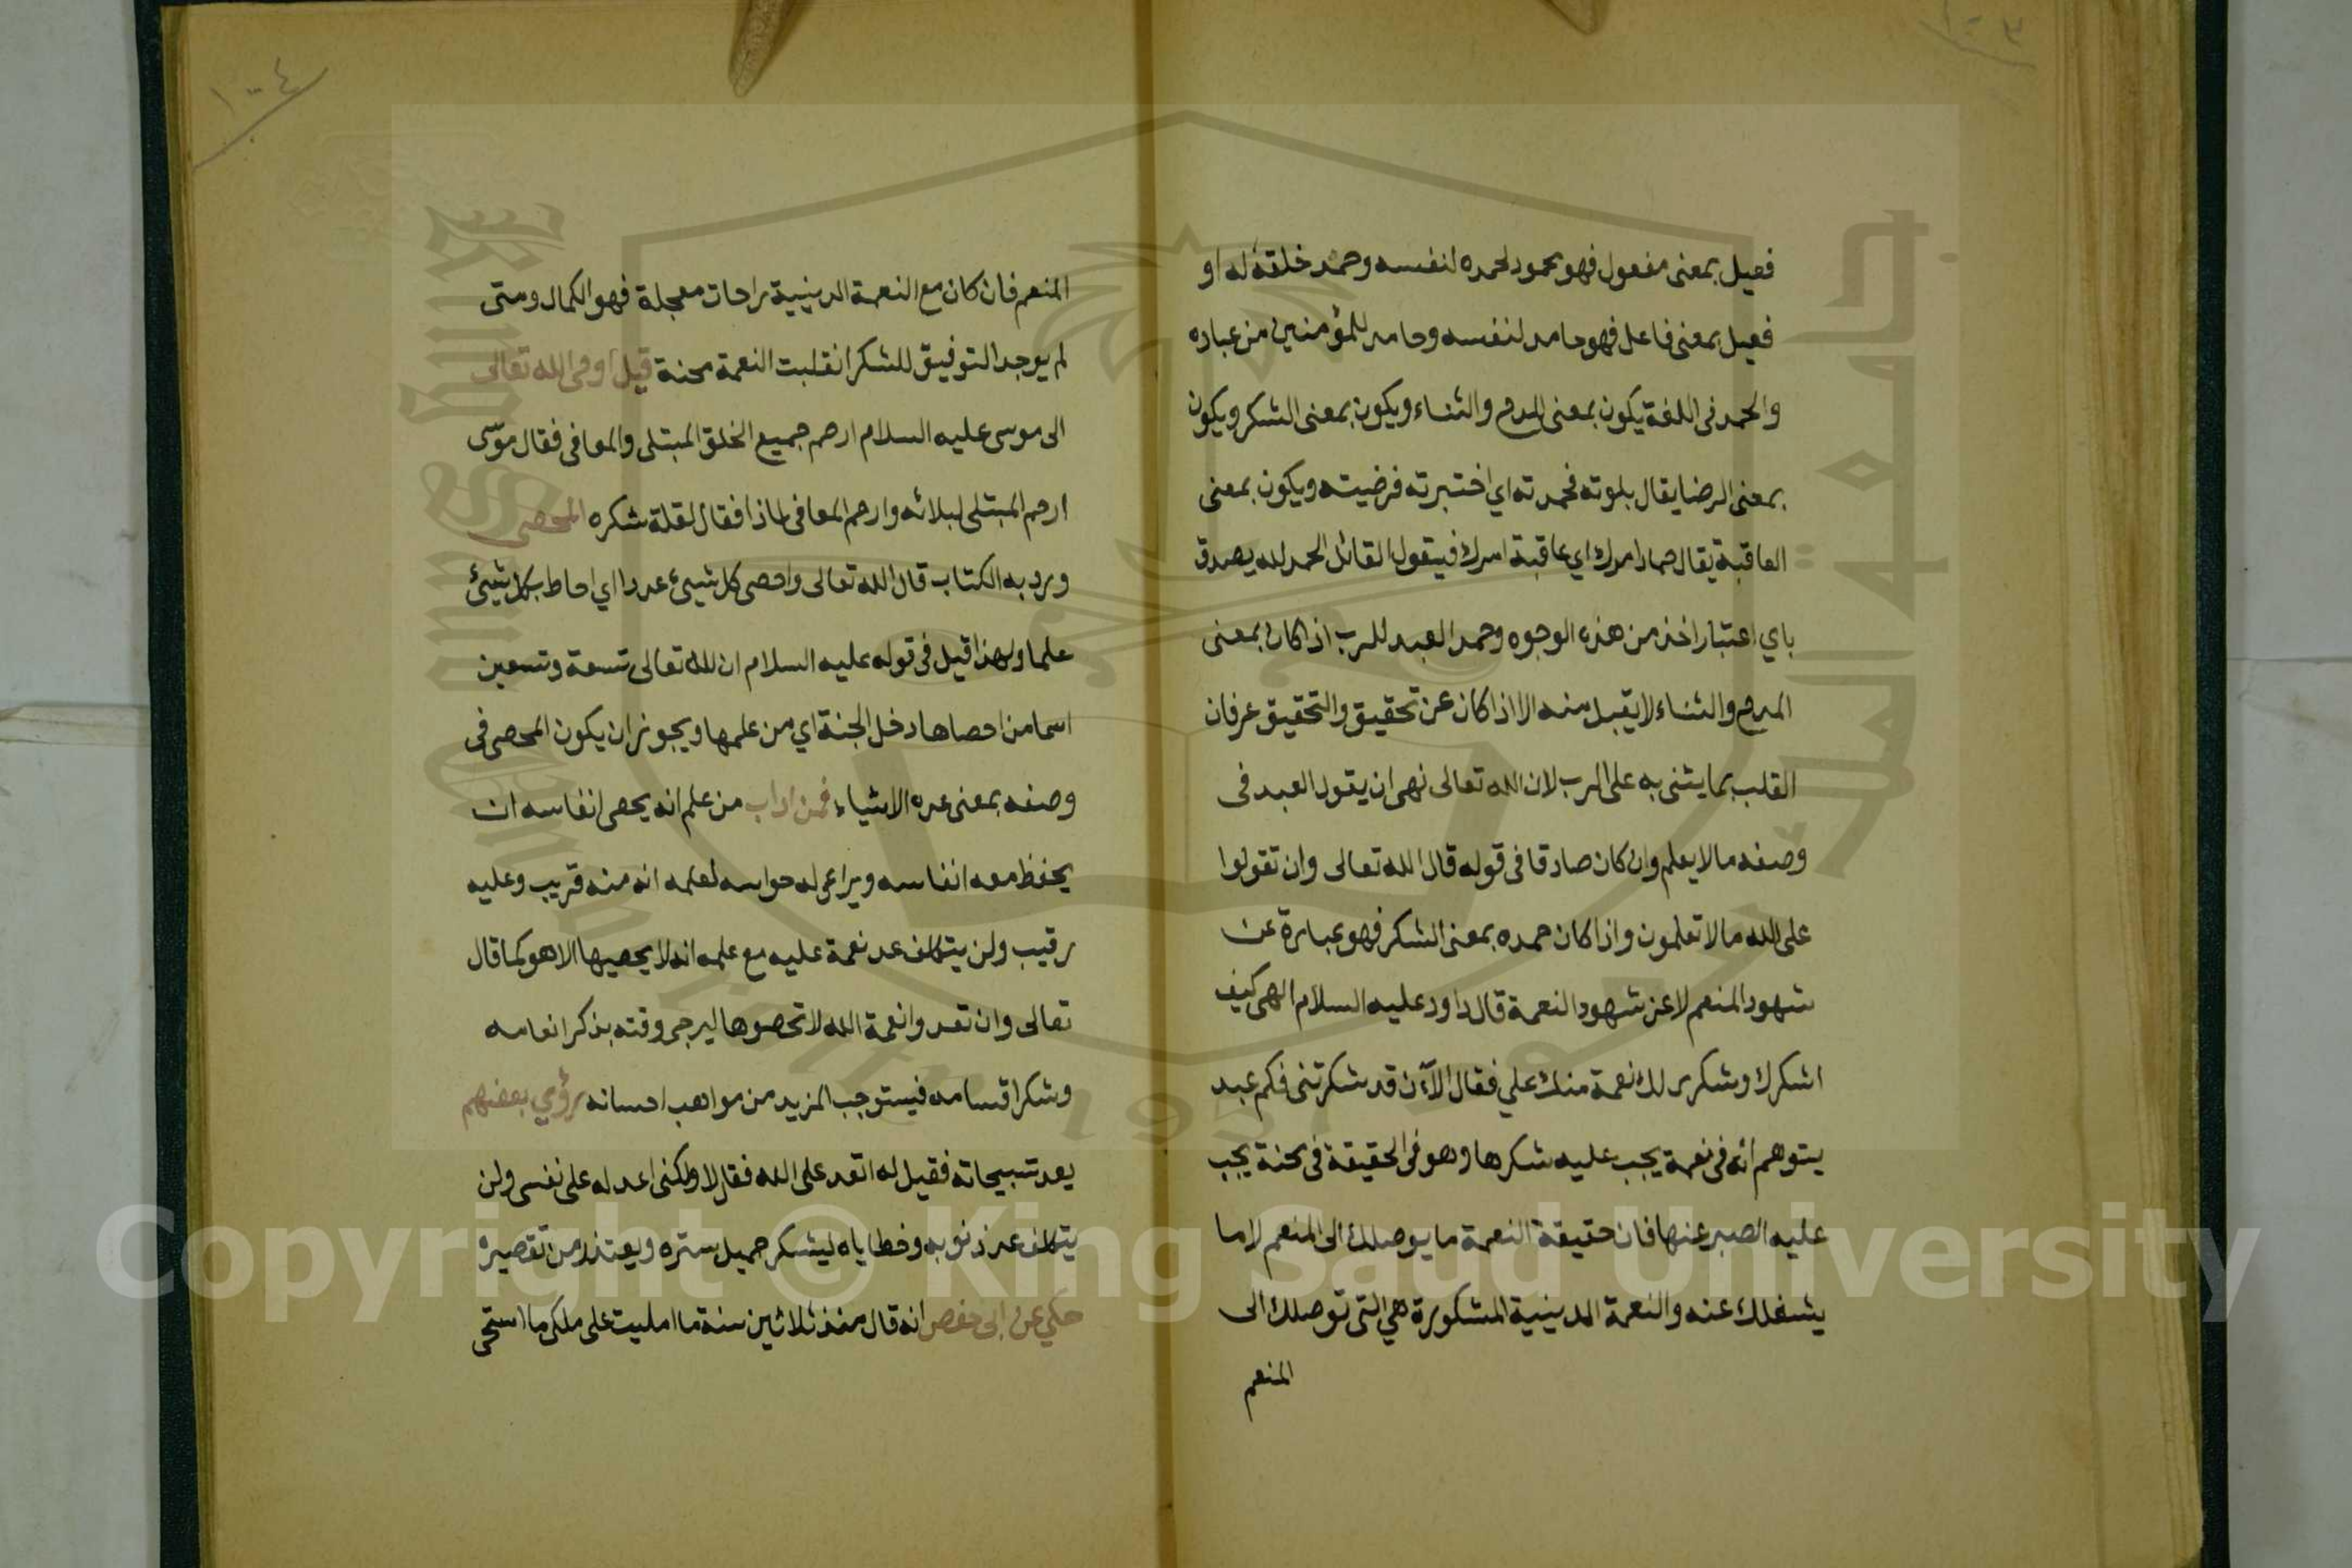 ١٠٣
فعيل بمعنى مفعول فهو محمود لحمده لنفسه وحمد خلقه له او
فعيل بمعنى فاعل فهو حامد لنفسه وحامد للمؤمنين من عباده
والحمد فى اللغة يكون بمعنى المدح والثناء ويكون بمعنى الشكر ويكون
بمعنى الرضا يقال بلوته فحمدته اي اختبرته فرضيته ويكون بمعنى
العاقبة يقال حماد امرك اي عاقبة امرك فيقول القائل الحمد لله يصدق
باي اعتبار اخذ من هذه الوجوه وحمد العبد للرب اذا كان بمعنى
المدح والثناء لا يقبل منه الا اذا كان عن تحقيق والتحقيق عرفان
القلب بما يثنى به على الرب لان الله تعالى نهى ان يقول العبد فى
وصفه ما لا يعلم وان كان صادقا فى قوله قال الله تعالى وان تقولوا
على الله ما لا تعلمون واذا كان حمده بمعنى الشكر فهو عبارة عن
شهود المنعم لا عن شهود النعمة قال داود عليه السلام الهى كيف
اشكرك وشكرى لك نعمة منك علي فقال الآن قد شكرتنى فكم عبد
يتوهم أنه فى نعمة يجب عليه شكرها وهو فى الحقيقة فى محنة يجب
عليه الصبر عنها فان حقيقة النعمة ما يوصلك الى المنعم لا ما
يشغلك عنه والنعمة الدينية المشكورة هي التى توصلك الى
المنعم
١٠٤
المنعم فان كان مع النعمة الدينية راحات معجلة فهو الكمال ومتى
لم يوجد التوفيق للشكر انقلبت النعمة محنة قيل اوحى الله تعالى
الى موسى عليه السلام ارحم جميع الخلق المبتلى والمعافى فقال موسى
ارحم المبتلى لبلائه وارحم المعافى لماذا فقال لقلة شكره المحصى
ورد به الكتاب قال الله تعالى واحصى كل شيئ عددا اي احاط بكل شيئ
علما ولهذا قيل فى قوله عليه السلام ان لله تعالى تسعة وتسعين
اسما من احصاها دخل الجنة اي من علمها ويجوز ان يكون المحصى فى
وصفه بمعنى عده الاشياء فمن اداب من علم انه يحصى انفاسه ان
يحفظ معه انفاسه ويراعى له حواسه لعلمه انه منه قريب وعليه
رقيب ولن يتكلف عد نعمة عليه مع علمه انه لا يحصيها الا هو كما قال
تعالى وان تعدوا نعمة الله لا تحصوها ليرجى وقته بذكر انعامه
وشكر اقسامه فيستوجب المزيد من مواهب احسانه رؤي بعضهم
يعد تسبيحاته فقيل له اتعد على الله فقال لا ولكنى اعد له على نفسى ولن
يتكلف عد ذنوبه وخطاياه ليشكر جميل ستره ويعتذر من تقصيره
حكي عن ابى حفص انه قال منذ ثلاثين سنة ما امليت على ملكى ما استحى
Copyright © King Saud University
جامعة الملك سعود
King Saud University
1957